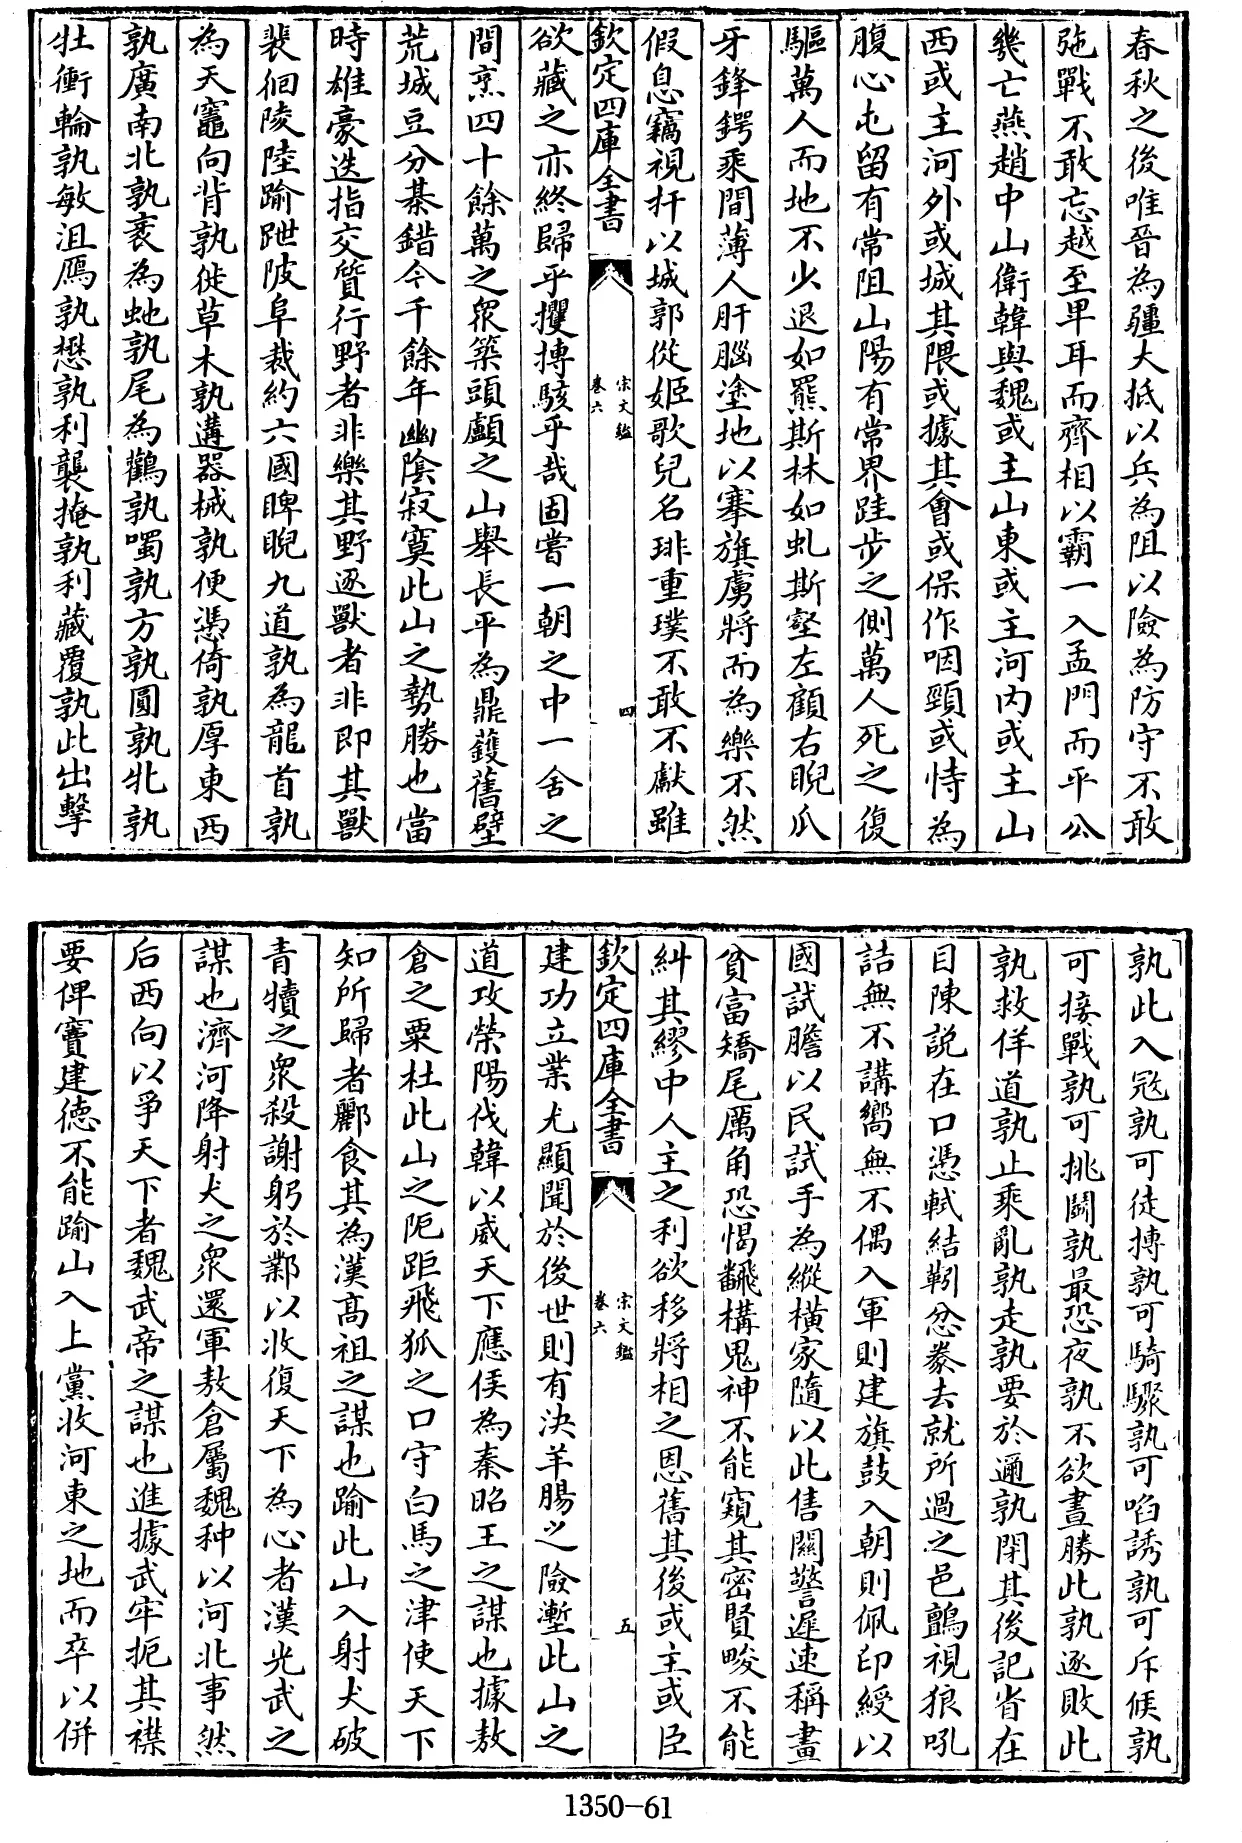 春秋之後唯晉為疆大抵以兵為阻以險為防守不敢
弛戰不敢忘越至畢耳而齊相以霸一入孟門而平公
幾亡燕趙中山衛韓與魏或主山東或主河内或主山
西或主河外或城其隈或據其會或保作咽頸或恃為
腹心屯留有常阻山陽有常界跬步之側萬人死之復
驅萬人而地不少退如羆斯林如虬斯壑左顧右睨爪
牙鋒鍔乘間薄人肝腦塗地以搴旗虜將而為樂不然
假息竊視扞以城郭從姬歌兒名琲重璞不敢不獻雖
欽定四庫全書
宋文鑑
卷六
四
欲藏之亦終歸乎攫搏駭乎哉固嘗一朝之中一舍之
間烹四十餘萬之衆築頭顱之山舉長平為鼎鑊舊壁
荒城豆分棊錯今千餘年幽陰寂寞此山之勢勝也當
時雄豪迭指交質行野者非樂其野逐獸者非即其獸
裴徊陵陸踰跇陂阜裁約六國睥睨九道孰為龍首孰
為天竈向背孰徙草木孰遘器械孰便憑倚孰厚東西
孰廣南北孰袤為虵孰尾為鸛孰噣孰方孰圓孰牝孰
牡衝輪孰敏沮鴈孰懋孰利襲掩孰利藏覆孰此出擊
孰此入宼孰可徒搏孰可騎驟孰可啗誘孰可斥候孰
可接戰孰可挑鬬孰最恐夜孰不欲晝勝此孰逐敗此
孰救佯道孰止乘亂孰走孰要於邇孰閉其後記省在
目陳說在口憑軾結靷忿豢去就所過之邑鸇視狼吼
詰無不講嚮無不偶入軍則建旗鼓入朝則佩印綬以
國試膽以民試手為縱横家隨以此售關警遲速稱畫
貧富矯尾厲角恐愒飜構鬼神不能窺其密賢畯不能
糾其繆中人主之利欲移將相之恩舊其後或主或臣
欽定四庫全書
宋文鑑
卷六
五
建功立業尤顯聞於後世則有決羊腸之險塹此山之
道攻滎陽伐韓以威天下應侯為秦昭王之謀也據敖
倉之粟杜此山之阨距飛狐之口守白馬之津使天下
知所歸者酈食其為漢高祖之謀也踰此山入射犬破
青犢之衆殺謝躬於鄴以收復天下為心者漢光武之
謀也濟河降射犬之衆還軍敖倉屬魏种以河北事然
后西向以爭天下者魏武帝之謀也進據武牢扼其襟
要俾竇建德不能踰山入上黨收河東之地而卒以併
1350-61